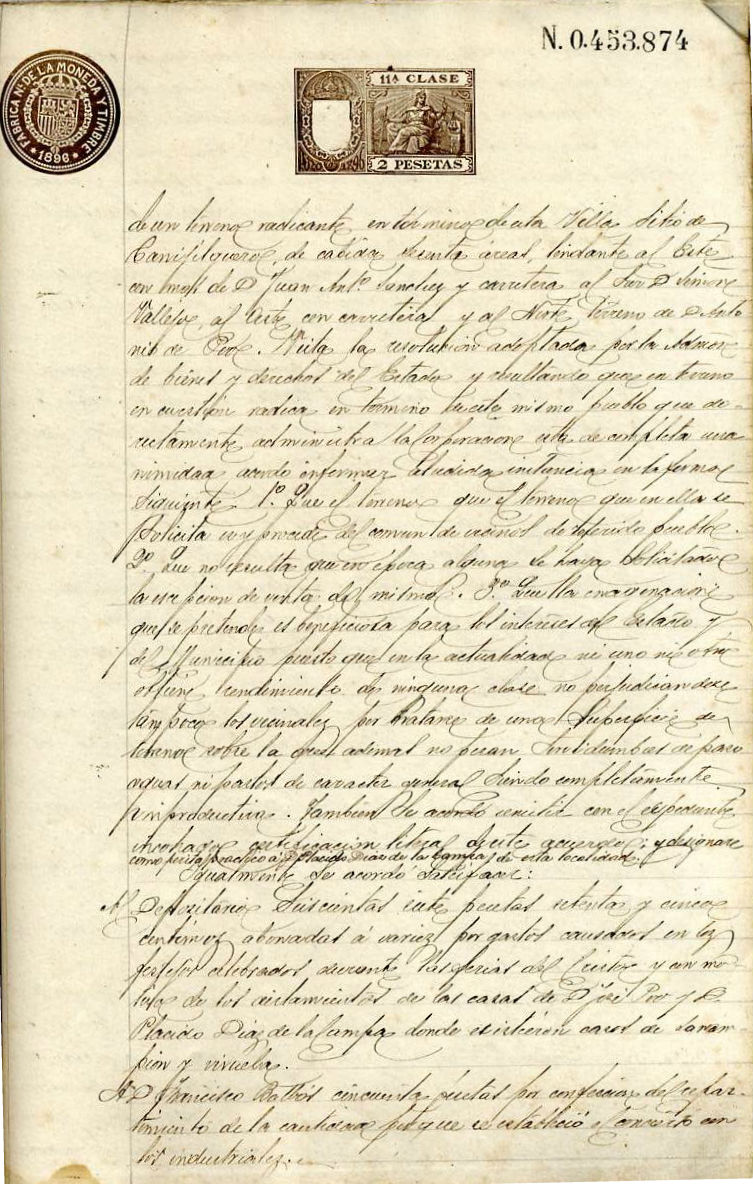 N. 0.453.874
FABRICA NAL DE LA MONEDA Y TIMBRE
1896
11ª CLASE
AÑO 1896
2 PESETAS
de un terreno radicante en termino de esta Villa sitio de
de cabida sesenta áreas, lindante al Este
con mojs de D Juan Antº Sanchez y carretera al Sur D Simon
Vallejo, al Oeste con carretera y al Norte terreno de D Anto
nio de Pro. Vista la resolución adoptada por la Admon
de bienes y derechos del Estado y resultando que en terreno
en cuestión radica en termino de este mismo pueblo que di-
rectamente administra la Corporacion esta de completa una
nimidad acordó informar aludida instancia en la forma
siguiente 1.º Que el terreno que el terreno que en ella se
solicita procede del comun de vecinos de referido pueblo.
2º Que no resulta que en época alguna se haya solicitado
la escepcion de venta del mismo. 3.º Que la enagenación
que se pretende es beneficiosa para los intereses del Estado y
del Municipio puesto que en la actualidad ni uno ni otro
obtiene rendimiento de ninguna clase no perjudicandose
tampoco los vecinales por tratarse de una superficie de
terreno sobre la cual ademas no pesan servidumbres de paso
aguas ni pastos de caracter general siendo completamente
improductiva. Tambien se acordó remitir con el espediente
incohado certificación literal de este acuerdo; y designare
como perito practico a D Placido Diaz de la Campa, de esta localidad
Igualmente se acordó satisfacer:
Al Depositario Suiscientas siete pesetas setenta y cinco
centimos abonadas á varios por gastos causados en los
festejos celebrados durante las ferias del Cristo y con mo-
tivo de los aislamientos de las casas de D José Pro y D.
Placido Diaz de la Campa donde existieron casos de saram-
pion y viruela.
A D Francisco cincuenta pesetas por confeccion del repar-
timiento de la cantidad porque se estableció el concierto con
los industriales.